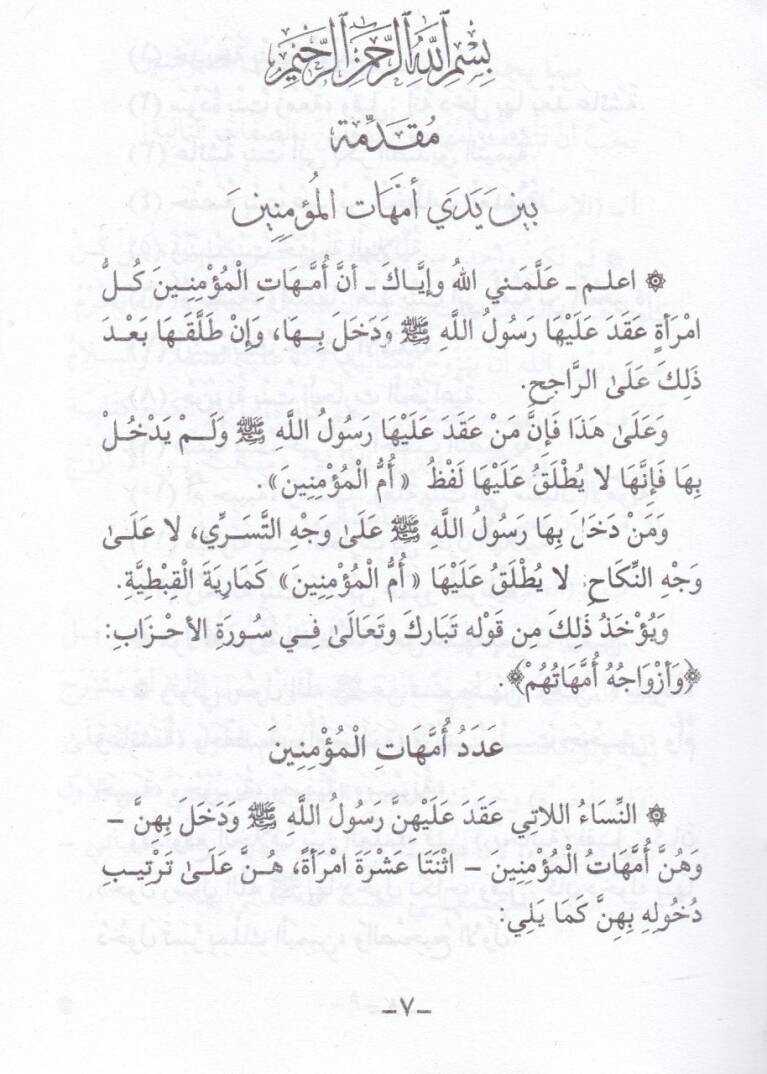 بِسْمِ اللَّهِ الرَّحْمَنِ الرَّحِيمِ
مُقَدِّمَة
بَيْنَ يَدَي أمَّهَات المُؤمِنِينَ
۞ اعلـم ـ عَلَّمَني اللهُ وإيَّاكَ ـ أنَّ أُمَّهَاتِ الْمُؤْمِنِينَ كُلُّ
امْرَأةٍ عَقَدَ عَلَيْهَا رَسُولُ اللَّهِ ﷺ ودَخَلَ بِـهَا، وَإنْ طَلَّقَـهَا بَعْـدَ
ذَلِكَ عَلَىٰ الرَّاجِحِ.
وَعَلَىٰ هَذَا فَإنَّ مَنْ عَقَدَ عَلَيْهَا رسُولُ اللَّهِ ﷺ وَلَـمْ يَدْخُـلْ
بِهَا فَإنَّهَا لا يُطْلَقُ عَلَيْهَا لَفْظُ «أُمُّ الْمُؤْمِنِينَ».
وَمَنْ دَخَلَ بِها رَسُولُ اللَّهِ ﷺ عَلَىٰ وَجْهِ التَّسَرِّي، لا عَلَـىٰ
وَجْهِ النِّكَاحِ، لا يُطْلَقُ عَلَيْهَا «أُمُّ الْمُؤْمِنِينَ» كَمَارِيَةَ الْقِبْطِيَّةِ.
وَيُؤْخَذُ ذَلِكَ مِن قَوْلِه تَبَارَكَ وتَعَالَىٰ فِـي سُورَةِ الأحْـزَابِ:
﴿وَأزْوَاجُهُ أُمَّهَاتُهُمْ﴾.
عَدَدُ أُمَّهَاتِ الْمُؤْمِنِينَ
۞ النِّسَاءُ اللاتِي عَقَدَ عَلَيْهِنَّ رَسُولُ اللَّهِ ﷺ وَدَخَلَ بِهِنَّ –
وَهُنَّ أُمَّهَاتُ الْمُؤْمِنِينَ – اثْنَتَا عَشْرَةَ امْرَأةً، هُـنَّ عَلَـىٰ تَرْتِيـبِ
دُخُولِهِ بِهِنَّ كَمَا يَلِي:
ـ٧ـ